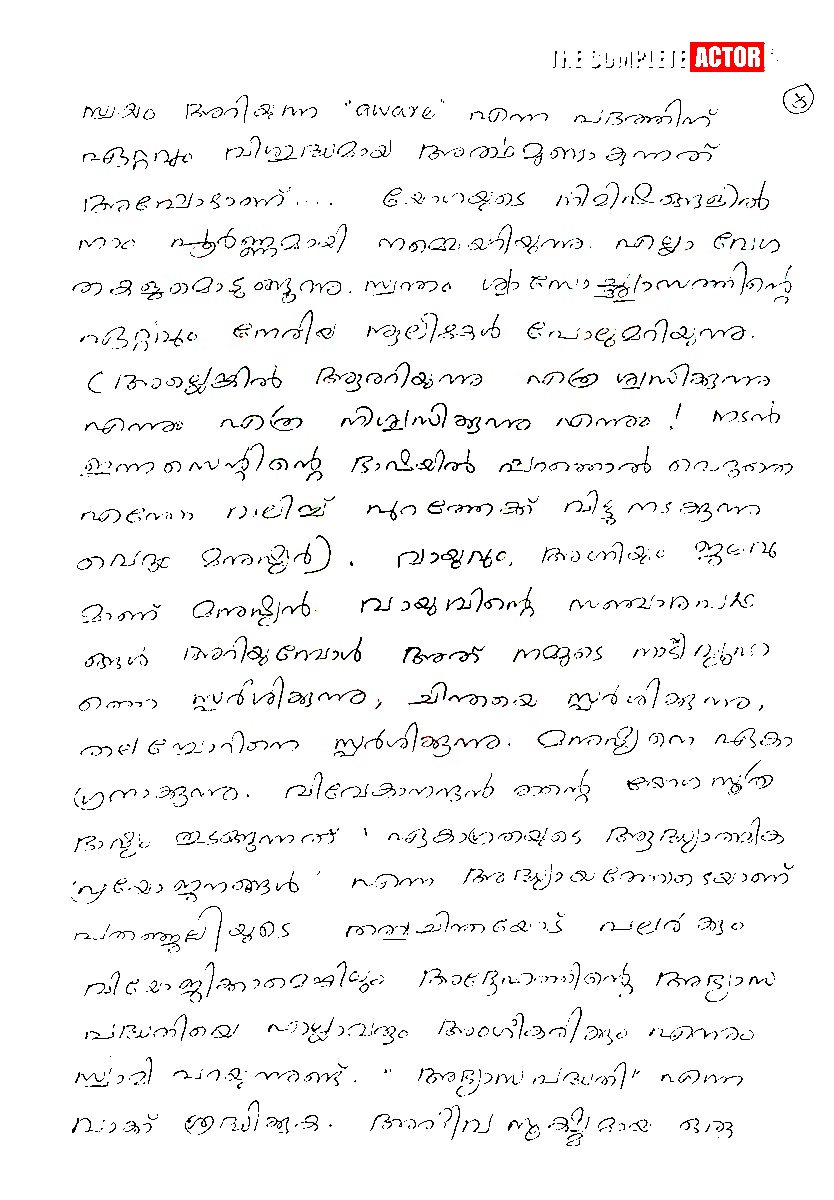 THE COMPLETE ACTOR
സ്വയം അറിയുന്ന "aware" എന്ന പദത്തിന്
ഏറ്റവും വിശുദ്ധമായ അർത്ഥമുണ്ടാകുന്നത്
അപ്പോഴാണ്.... യോഗയുടെ നിമിഷങ്ങളിൽ
നാം പൂർണ്ണമായി നമ്മെയറിയുന്നു. എല്ലാ വേഗ
തകളുമൊടുങ്ങുന്നു. സ്വന്തം ശ്വാസോച്ഛ്വാസത്തിന്റെ
ഏറ്റവും നേരിയ ശ്രുതികൾ പോലുമറിയുന്നു.
(അല്ലെങ്കിൽ ആരറിയുന്നു എത്ര ശ്വസിക്കുന്നു
എന്നും എത്ര നിശ്വസിക്കുന്നു എന്നും! നടൻ
ഇന്നസെന്റിന്റെ ഭാഷയിൽ പറഞ്ഞാൽ വെറുതെ
എന്തോ വലിച്ച് പുറത്തേക്ക് വിട്ടു നടക്കുന്ന
വെറും മനുഷ്യർ). വായുവും, അഗ്നിയും ജലവു
മാണ് മനുഷ്യൻ. വായുവിന്റെ സഞ്ചാരപഥ
ങ്ങൾ അറിയുമ്പോൾ അത് നമ്മുടെ നാഡീവ്യൂഹ
ത്തെ സ്പർശിക്കുന്നു, ചിന്തയെ സ്പർശിക്കുന്നു,
തലച്ചോറിനെ സ്പർശിക്കുന്നു. മനുഷ്യനെ ഏകാ
ഗ്രനാക്കുന്നു. വിവേകാനന്ദൻ തന്റെ യോഗസൂത്ര
ഭാഷ്യം തുടങ്ങുന്നത് 'ഏകാഗ്രതയുടെ ആദ്ധ്യാത്മിക
പ്രയോജനങ്ങൾ' എന്ന അദ്ധ്യായത്തോടെയാണ്
പതഞ്ജലിയുടെ തത്വചിന്തയോട് പലർക്കും
വിയോജിക്കാമെങ്കിലും അദ്ദേഹത്തിന്റെ അഭ്യാസ
പദ്ധതിയെ എല്ലാവരും അംഗീകരിക്കും എന്നും
സ്വാമി പറയുന്നുണ്ട്. "അഭ്യാസപദ്ധതി" എന്ന
വാക്ക് ശ്രദ്ധിക്കുക. അതീവ സൂക്ഷ്മമായ ഒരു